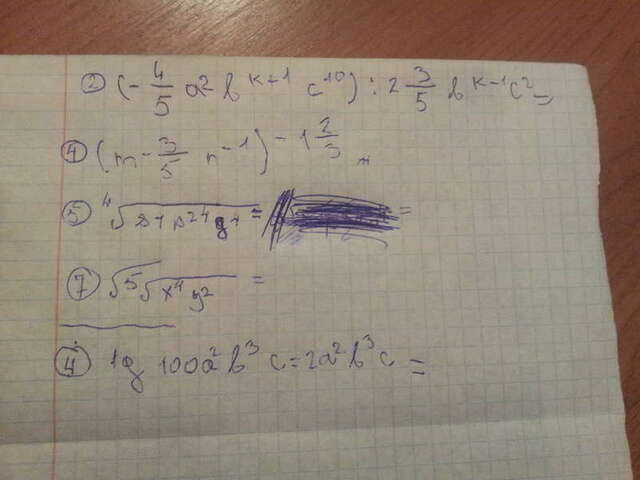 ② (-4/5 a² b^(k+1) c^10) : 2 3/5 b^(k-1) c² =
④ (m^(-3/5) n^(-1))^(-1 2/3) =
⑤ ⁴√ =
⑦ √ ⁵√(x⁴ y²) =
④ lg 100a² b³ c = 2a² b³ c =